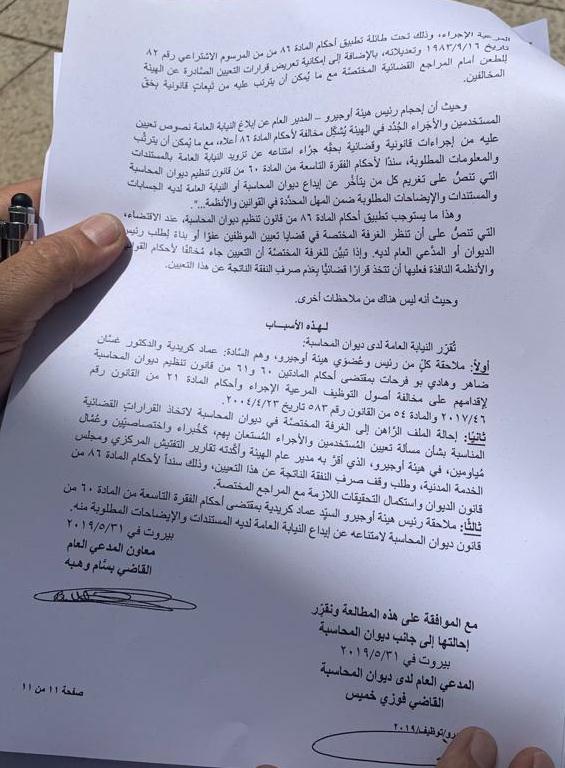 المرعية الإجراء، وذلك تحت طائلة تطبيق أحكام المادة ٨٦ من من المرسوم الاشتراعي رقم ٨٢
تاريخ ١٩٨٣/٩/١٦ وتعديلاته، بالإضافة إلى إمكانية تعريض قرارات التعيين الصادرة عن الهيئة
للطعن أمام المراجع القضائية المختصّة مع ما يُمكن أن يترتب عليه من تبعاتٍ قانونية بحقّ
المخالفين.
وحيث أن إحجام رئيس هيئة أوجيرو – المدير العام عن إبلاغ النيابة العامة نصوص تعيين
المستخدمين والأجراء الجُدُد في الهيئة يُشكِّل مخالفة لأحكام المادة ٨٦ أعلاه، مع ما يُمكن أن يترتّب
عليه من إجراءات قانونية وقضائية بحقِّه جرَّاء امتناعه عن تزويد النيابة العامة بالمستندات
والمعلومات المطلوبة، سنداً لأحكام الفقرة التاسعة من المادة ٦٠ من قانون تنظيم ديوان المحاسبة
التي تنصُّ على تغريم كل من يتأخَّر عن إيداع ديوان المحاسبة أو النيابة العامة لديه الحسابات
والمستندات والإيضاحات المطلوبة ضمن المهل المحدَّدة في القوانين والأنظمة...".
وهذا ما يستوجب تطبيق أحكام المادة ٨٦ من قانون تنظيم ديوان المحاسبة،
التي تنصُّ على أن تنظر الغرفة المختصة في قضايا تعيين الموظفين عفوًا أو بناءً لطلب رئيس
الديوان أو المدَّعي العام لديه. وإذا تبيَّن للغرفة المختصّة أن التعيين جاء مُخالفًا لأحكام
والأنظمة النافذة فعليها أن تتخذ قرارًا قضائيًّا بعدم صرف النفقة الناتجة عن هذا التعيين.
وحيث أنه ليس هناك من ملاحظات أخرى.
لـهذه الأسبـــاب
تُقرّر النيابة العامة لدى ديوان المحاسبة:
أولاً: ملاحقة كلٍّ من رئيس وعُضوَي هيئة أوجيرو، وهم السَّادة: عماد كريدية والدكتور غسَّان
ضاهر وهادي بو فرحات بمقتضى أحكام المادتين ٦٠ و٦١ من قانون تنظيم ديوان المحاسبة
لإقدامهم على مخالفة أصول التوظيف المرعية الإجراء وأحكام المادة ٢١ من القانون رقم
٢٠١٧/٤٦ والمادة ٥٤ من القانون رقم ٥٨٣ تاريخ ٢٠٠٤/٤/٢٣.
ثانيًا: إحالة الملف الرَّاهن إلى الغرفة المختصَّة في ديوان المحاسبة لاتخاذ القرارات القضائية
المناسبة بشأن مسألة تعيين المُستخدمين والأجراء المُستعان بهم، كخُبراء واختصاصيّين وعُمَّال
مُياومين، في هيئة أوجيرو، الذي أقرَّ به مدير عام الهيئة وأكّدته تقارير التفتيش المركزي ومجلس
الخدمة المدنية، وطلب وقف صرف النفقة الناتجة عن هذا التعيين، وذلك سنداً لأحكام المادة ٨٦ من
قانون الديوان واستكمال التحقيقات اللازمة مع المراجع المختصة.
ثالثًا: ملاحقة رئيس هيئة أوجيرو السيّد عماد كريدية بمقتضى أحكام الفقرة التاسعة من المادة ٦٠ من
قانون ديوان المحاسبة لامتناعه عن إيداع النيابة العامة لديه المستندات والإيضاحات المطلوبة منه.
بيروت في ٢٠١٩/٥/٣١
معاون المدعي العام
القاضي بسَّام وهبه
مع الموافقة على هذه المطالعة ونقرّر
إحالتها إلى جانب ديوان المحاسبة
بيروت في ٢٠١٩/٥/٣١
المدعي العام لدى ديوان المحاسبة
القاضي فوزي خميس
صفحة ١١ من ١١